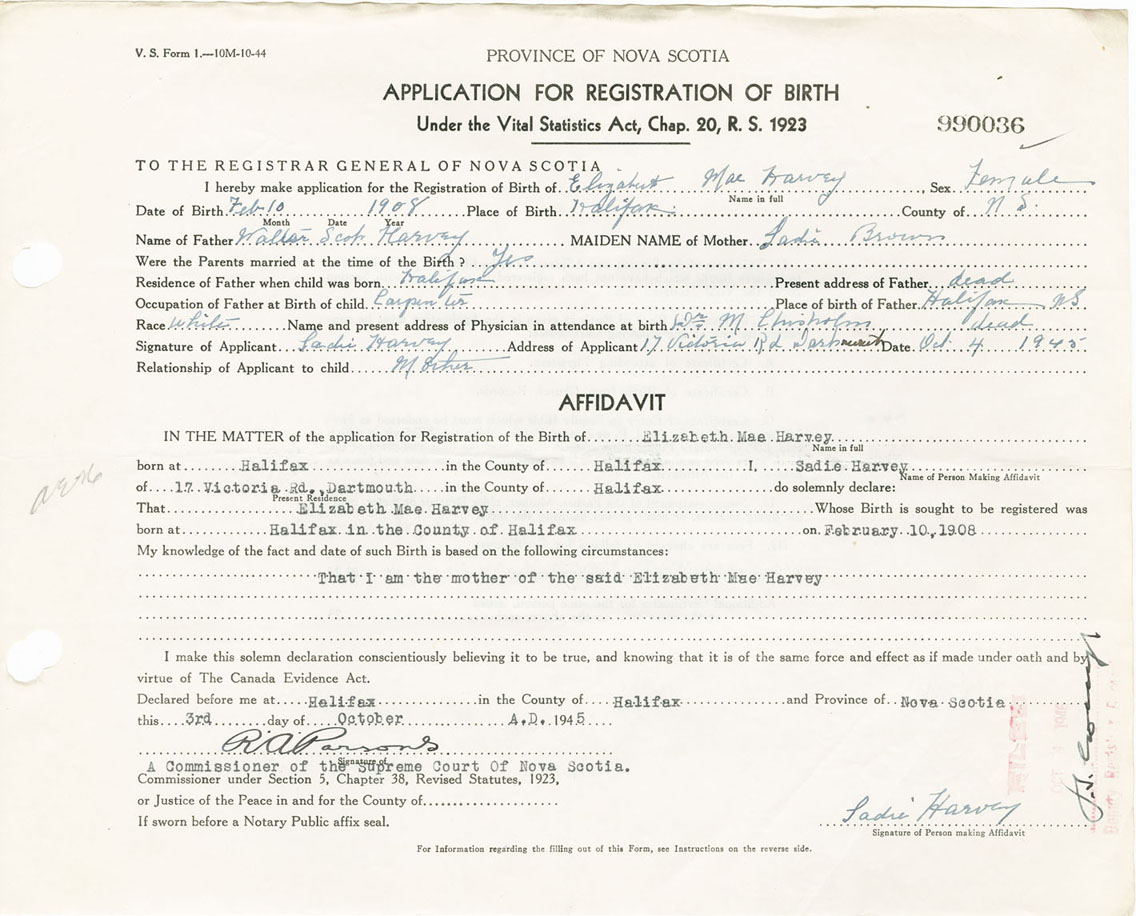 V. S. Form 1.—10M-10-44
PROVINCE OF NOVA SCOTIA
APPLICATION FOR REGISTRATION OF BIRTH
Under the Vital Statistics Act, Chap. 20, R. S. 1923
990036
TO THE REGISTRAR GENERAL OF NOVA SCOTIA
I hereby make application for the Registration of Birth of Elizabeth Mae Harvey, Sex Female
Name in full
Date of Birth Feb 10 1908 Place of Birth Halifax County of N S.
Month Date Year
Name of Father Walter Scot Harvey MAIDEN NAME of Mother Sadie Brown
Were the Parents married at the time of the Birth? Yes
Residence of Father when child was born Halifax Present address of Father dead
Occupation of Father at Birth of child Carpenter Place of birth of Father Halifax NS
Race White Name and present address of Physician in attendance at birth Dr M Chisholm dead
Signature of Applicant Sadie Harvey Address of Applicant 17 Victoria Rd Dartmouth Date Oct 4 1945
Relationship of Applicant to child Mother
AFFIDAVIT
IN THE MATTER of the application for Registration of the Birth of Elizabeth Mae Harvey
Name in full
born at Halifax in the County of Halifax I, Sadie Harvey
Name of Person Making Affidavit
of 17 Victoria Rd., Dartmouth in the County of Halifax do solemnly declare:
Present Residence
That Elizabeth Mae Harvey Whose Birth is sought to be registered was
born at Halifax in the County of Halifax on February 10, 1908
My knowledge of the fact and date of such Birth is based on the following circumstances:
That I am the mother of the said Elizabeth Mae Harvey
I make this solemn declaration conscientiously believing it to be true, and knowing that it is of the same force and effect as if made under oath and by
virtue of The Canada Evidence Act.
Declared before me at Halifax in the County of Halifax and Province of Nova Scotia
this 3rd day of October A.D. 1945
R A Parsons
Signature of
A Commissioner of the Supreme Court Of Nova Scotia.
Commissioner under Section 5, Chapter 38, Revised Statutes, 1923,
or Justice of the Peace in and for the County of
If sworn before a Notary Public affix seal.
Sadie Harvey
Signature of Person making Affidavit
For Information regarding the filling out of this Form, see Instructions on the reverse side.